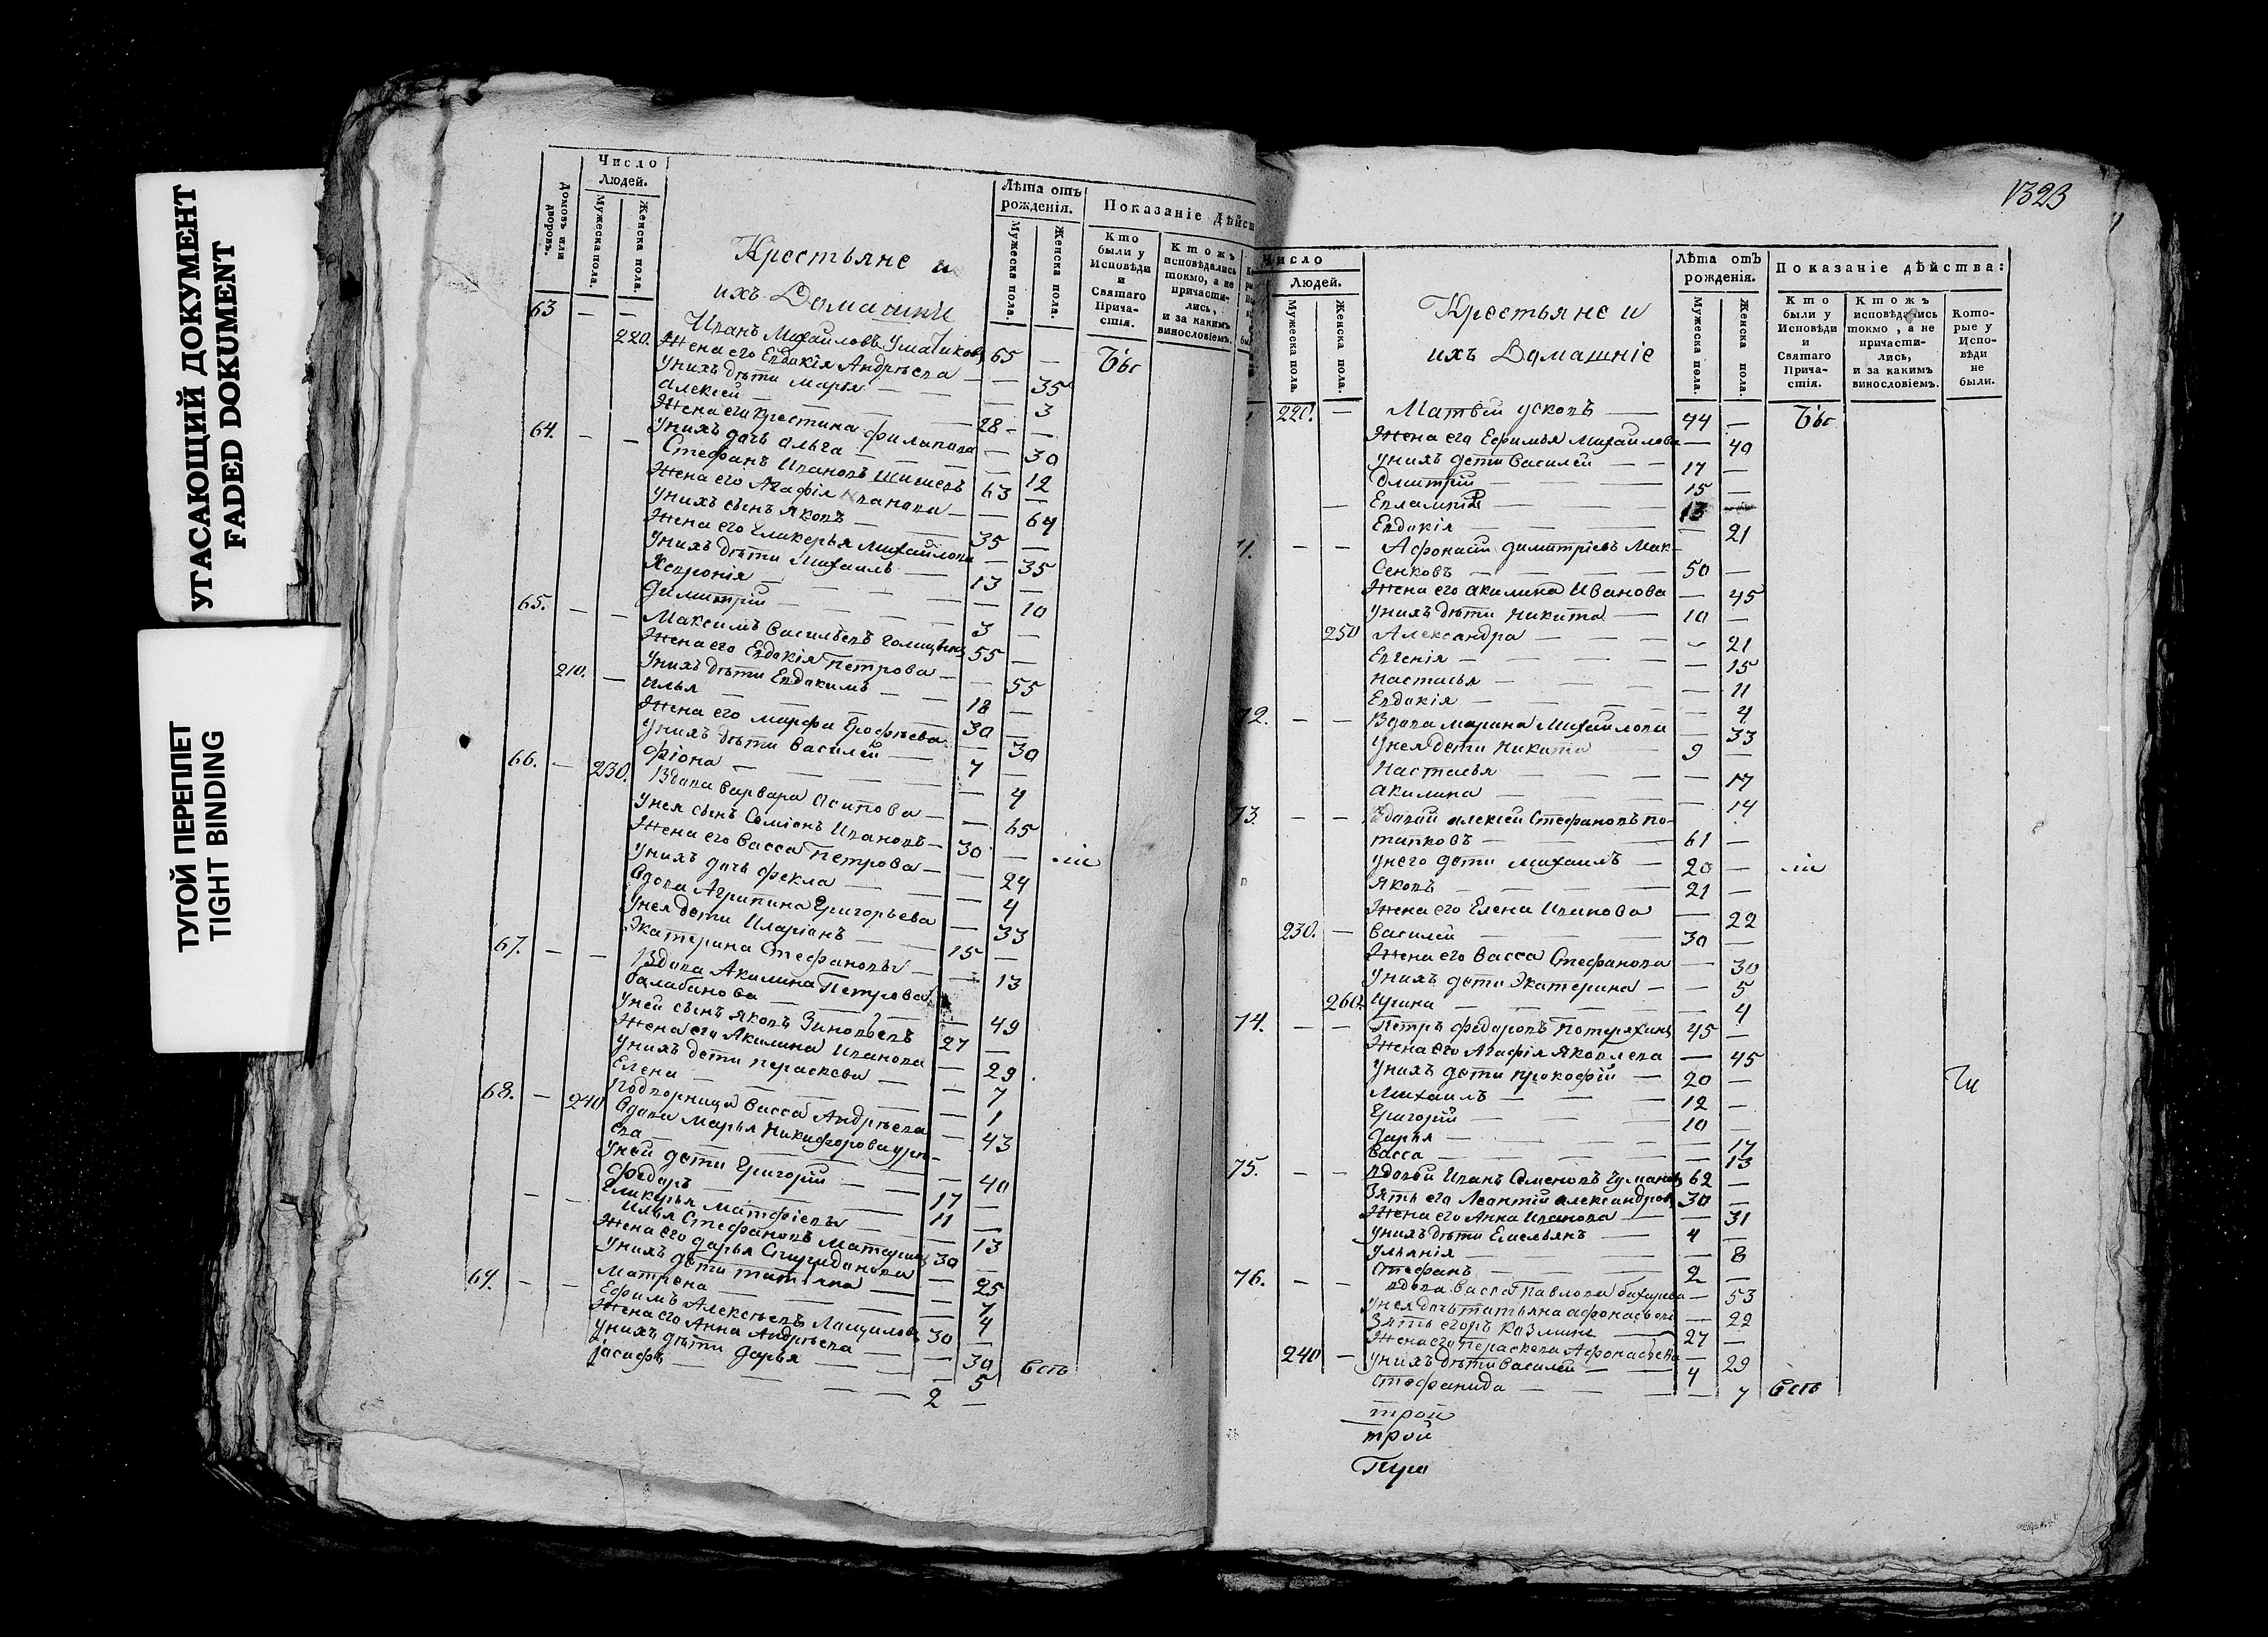 УТАСАЮЩИЙ ДОКУМЕНТ
FADED DOKUMENT
ТУГОЙ ПЕРЕПЛЕТ
TIGHT BINDING
Домовъ или дворовъ.
Число Людей.
Мужеска пола.
Женска пола.
Крестьяне и
ихъ Домашніе
Лѣта отъ рожденія.
Мужеска пола.
Женска пола.
Показаніе дѣйст
Кто были у Исповѣди и Святаго Причастія.
Ктожъ исповѣдались токмо, а не причастились, и за какимъ винословіемъ.
63 — — Иванъ Михаиловъ 65 —
220. Жена его Евдокія Андрѣева — 35
Унихъ дѣти Марья — 3
Алексей 28 —
Жена его Крестина Филипова — 30
Унихъ дочь Ольга — 12
64. — — Стефанъ Ивановъ Шишовъ 63 —
Жена его Агафія Иванова — 64
Унихъ сынъ Яковъ 35 —
Жена его Гликерья Михайлова — 35
Унихъ дѣти Михаилъ 13 —
Хевронія — 10
Димитрій 3 —
65. — — Максимъ Васильевъ Голицынъ 55 —
Жена его Евдокія Петрова — 55
210. — Унихъ дѣти Евдокимъ 18 —
Илья 30 —
Жена его Марфа Ерофѣева — 30
Унихъ дѣти Василей 7 —
Фіона — 4
66. — 230. Вдова Варвара Осипова — 65
Унея сынъ Семіонъ Ивановъ 30 —
Жена его Васса Петрова — 24
Унихъ дочь Фекла — 4
Вдова Агрипина Григорьева — 33
Унея дети Иларіонъ 15 —
Экатерина Стефановы — 13
67. — — Вдова Акилина Петрова
балабанова — 49
Уней сынъ Яковъ Зиновьевъ 27 —
Жена его Акилина Иванова — 29
Унихъ дети Пераскева — 7
Елена — 1
Подворница Васса Андрѣева — 43
68. — 240 Вдова Марья Никифорова
ева — 40
Уней дети Григорій 17 —
Федаръ 11 —
Гликерья Матфіевы — 13
— — Илья Стефановъ 30 —
Жена его Дарья Спиридонова — 25
Унихъ дети Татіяна — 7
Матрена — 4
69. — — Ефимъ Алексѣевъ Лащиловъ 30 —
Жена его Анна Андрѣева — 30
Унихъ дѣти Дарья — 5
Іасифъ 2 —
1323
Число Людей.
Мужеска пола.
Женска пола.
Крестьяне и
ихъ Домашніе
Лѣта отъ рожденія.
Мужеска пола.
Женска пола.
Показаніе дѣйства:
Кто были у Исповѣди и Святаго Причастія.
Ктожъ исповѣдались токмо, а не причастились, и за какимъ винословіемъ.
Которые у Исповѣди не были.
220. — Матвѣй 44 —
Жена его Ефимья Михаилова — 40
Унихъ дети Василей 17 —
Дмитрій 15 —
Евлампій 13
Евдокія — 21
71. — — Афонасій Димитріевъ Мак-
Сенковъ 50 —
Жена его Акилина Иванова — 45
Унихъ дѣти Никита 10 —
250 Александра — 21
Евгенія — 15
Настасья — 11
Евдокія — 4
72. — — Вдова Марина Михайлова — 33
Унея дети Никита 9 —
Настасья — 17
Акилина — 14
73. — — Вдовой Алексей Стефановъ По-
тапковъ 61 —
Унего дети Михаилъ 20 —
Яковъ 21 —
Жена его Елена Иванова — 22
230. — Василей 30 —
Жена его Васса Стефанова — 30
Унихъ дети Экатерина — 5
260. Ирина — 4
74. — — Петръ Федаровъ Потеряхинъ 45 —
Жена его Агафія Яковлева — 45
Унихъ дети Прокофій 20 —
Михаилъ 12 —
Григорій 10 —
Дарья — 17
Васса — 13
75. — — Вдовой Иванъ Семеновъ Чумаковъ 62 —
Зять его Леонтій Александровъ 30 —
Жена его Анна Иванова — 31
Унихъ дѣти Емельянъ 4 —
Ульянія — 8
Стефанъ 2 —
76. — — Вдова Васса Павлова Бахарева — 53
Унея дочь Татьяна Афонасьева — 22
Зять Егоръ Казминъ 27 —
Жена его Пераскева Афонасьева — 29
240 — Унихъ дѣти Василей 4 —
Стефанида — 7
трои
трой